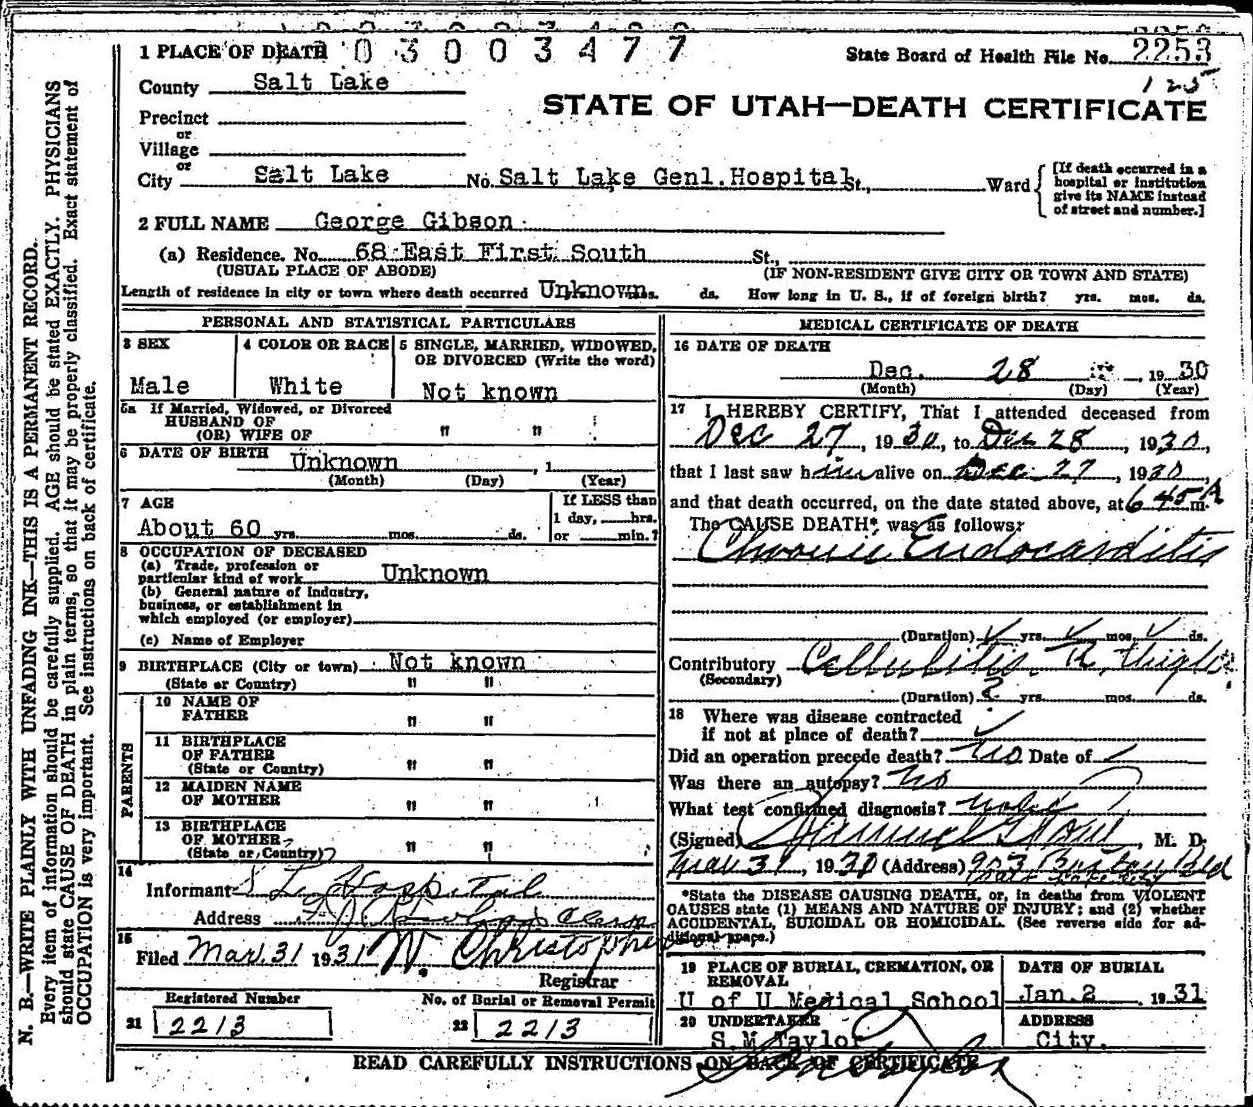 1 PLACE OF DEATH 03003477 State Board of Health File No. 2253
125
County Salt Lake
STATE OF UTAH—DEATH CERTIFICATE
Precinct
or
Village
or
City Salt Lake No. Salt Lake Genl. Hospital St., Ward [If death occurred in a hospital or institution give its NAME instead of street and number.]
2 FULL NAME George Gibson
(a) Residence. No. 68 East First South St.,
(USUAL PLACE OF ABODE) (IF NON-RESIDENT GIVE CITY OR TOWN AND STATE)
Length of residence in city or town where death occurred Unknown yrs. mos. ds. How long in U. S., if of foreign birth? yrs. mos. ds.
PERSONAL AND STATISTICAL PARTICULARS
3 SEX
Male
4 COLOR OR RACE
White
5 SINGLE, MARRIED, WIDOWED,
OR DIVORCED (Write the word)
Not known
5a If Married, Widowed, or Divorced
HUSBAND OF
(OR) WIFE OF " "
6 DATE OF BIRTH Unknown , 1
(Month) (Day) (Year)
7 AGE
About 60 yrs. mos. ds.
If LESS than
1 day, hrs.
or min.?
8 OCCUPATION OF DECEASED
(a) Trade, profession or
particular kind of work Unknown
(b) General nature of industry,
business, or establishment in
which employed (or employer)
(c) Name of Employer
9 BIRTHPLACE (City or town) Not known
(State or Country) " "
PARENTS
10 NAME OF
FATHER " "
11 BIRTHPLACE
OF FATHER
(State or Country) " "
12 MAIDEN NAME
OF MOTHER " "
13 BIRTHPLACE
OF MOTHER
(State or Country) " "
14
Informant S L Hospital
Address
15
Filed Mar. 31 1931 W. Christopherson
Registrar
Registered Number
21 2213
No. of Burial or Removal Permit
22 2213
MEDICAL CERTIFICATE OF DEATH
16 DATE OF DEATH
Dec. 28 , 1930
(Month) (Day) (Year)
17 I HEREBY CERTIFY, That I attended deceased from
Dec 27, 1930, to Dec 28, 1930,
that I last saw him alive on Dec 27, 1930,
and that death occurred, on the date stated above, at 645 A m.
The CAUSE DEATH* was as follows:
Chronic Endocarditis
(Duration) yrs. mos. ds.
Contributory Cellulitis R. thigh
(Secondary)
(Duration) ? yrs. mos. ds.
18 Where was disease contracted
if not at place of death?
Did an operation precede death? No Date of
Was there an autopsy? No
What test confirmed diagnosis?
(Signed) M. D.
Mar 31, 1931 (Address) 903 Boston Bld
*State the DISEASE CAUSING DEATH, or, in deaths from VIOLENT
CAUSES state (1) MEANS AND NATURE OF INJURY; and (2) whether
ACCIDENTAL, SUICIDAL OR HOMICIDAL. (See reverse side for ad-
ditional space.)
19 PLACE OF BURIAL, CREMATION, OR
REMOVAL
U of U Medical School
DATE OF BURIAL
Jan. 2 , 1931
20 UNDERTAKER
S. M. Taylor
ADDRESS
City.
READ CAREFULLY INSTRUCTIONS ON BACK OF CERTIFICATE
N. B.—WRITE PLAINLY WITH UNFADING INK—THIS IS A PERMANENT RECORD.
Every item of information should be carefully supplied. AGE should be stated EXACTLY. PHYSICIANS
should state CAUSE OF DEATH in plain terms, so that it may be properly classified. Exact statement of
OCCUPATION is very important. See instructions on back of certificate.